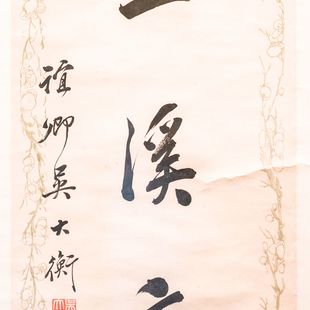 溪
誼卿吳大衡